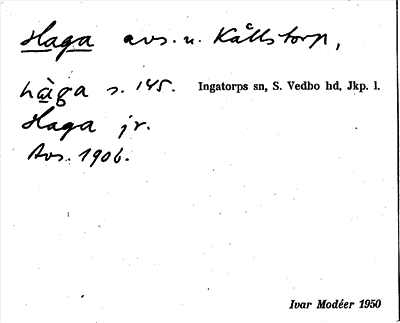 Haga avs. u. Källstorp,
hàga s. 145. Ingatorps sn, S. Vedbo hd, Jkp. l.
Haga jr.
Avs. 1906.
Ivar Modéer 1950